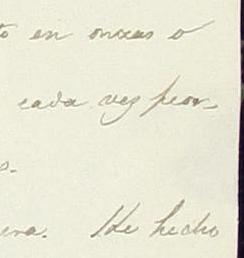 to en onzas o
cada vez peor.
s.
era. He hecho